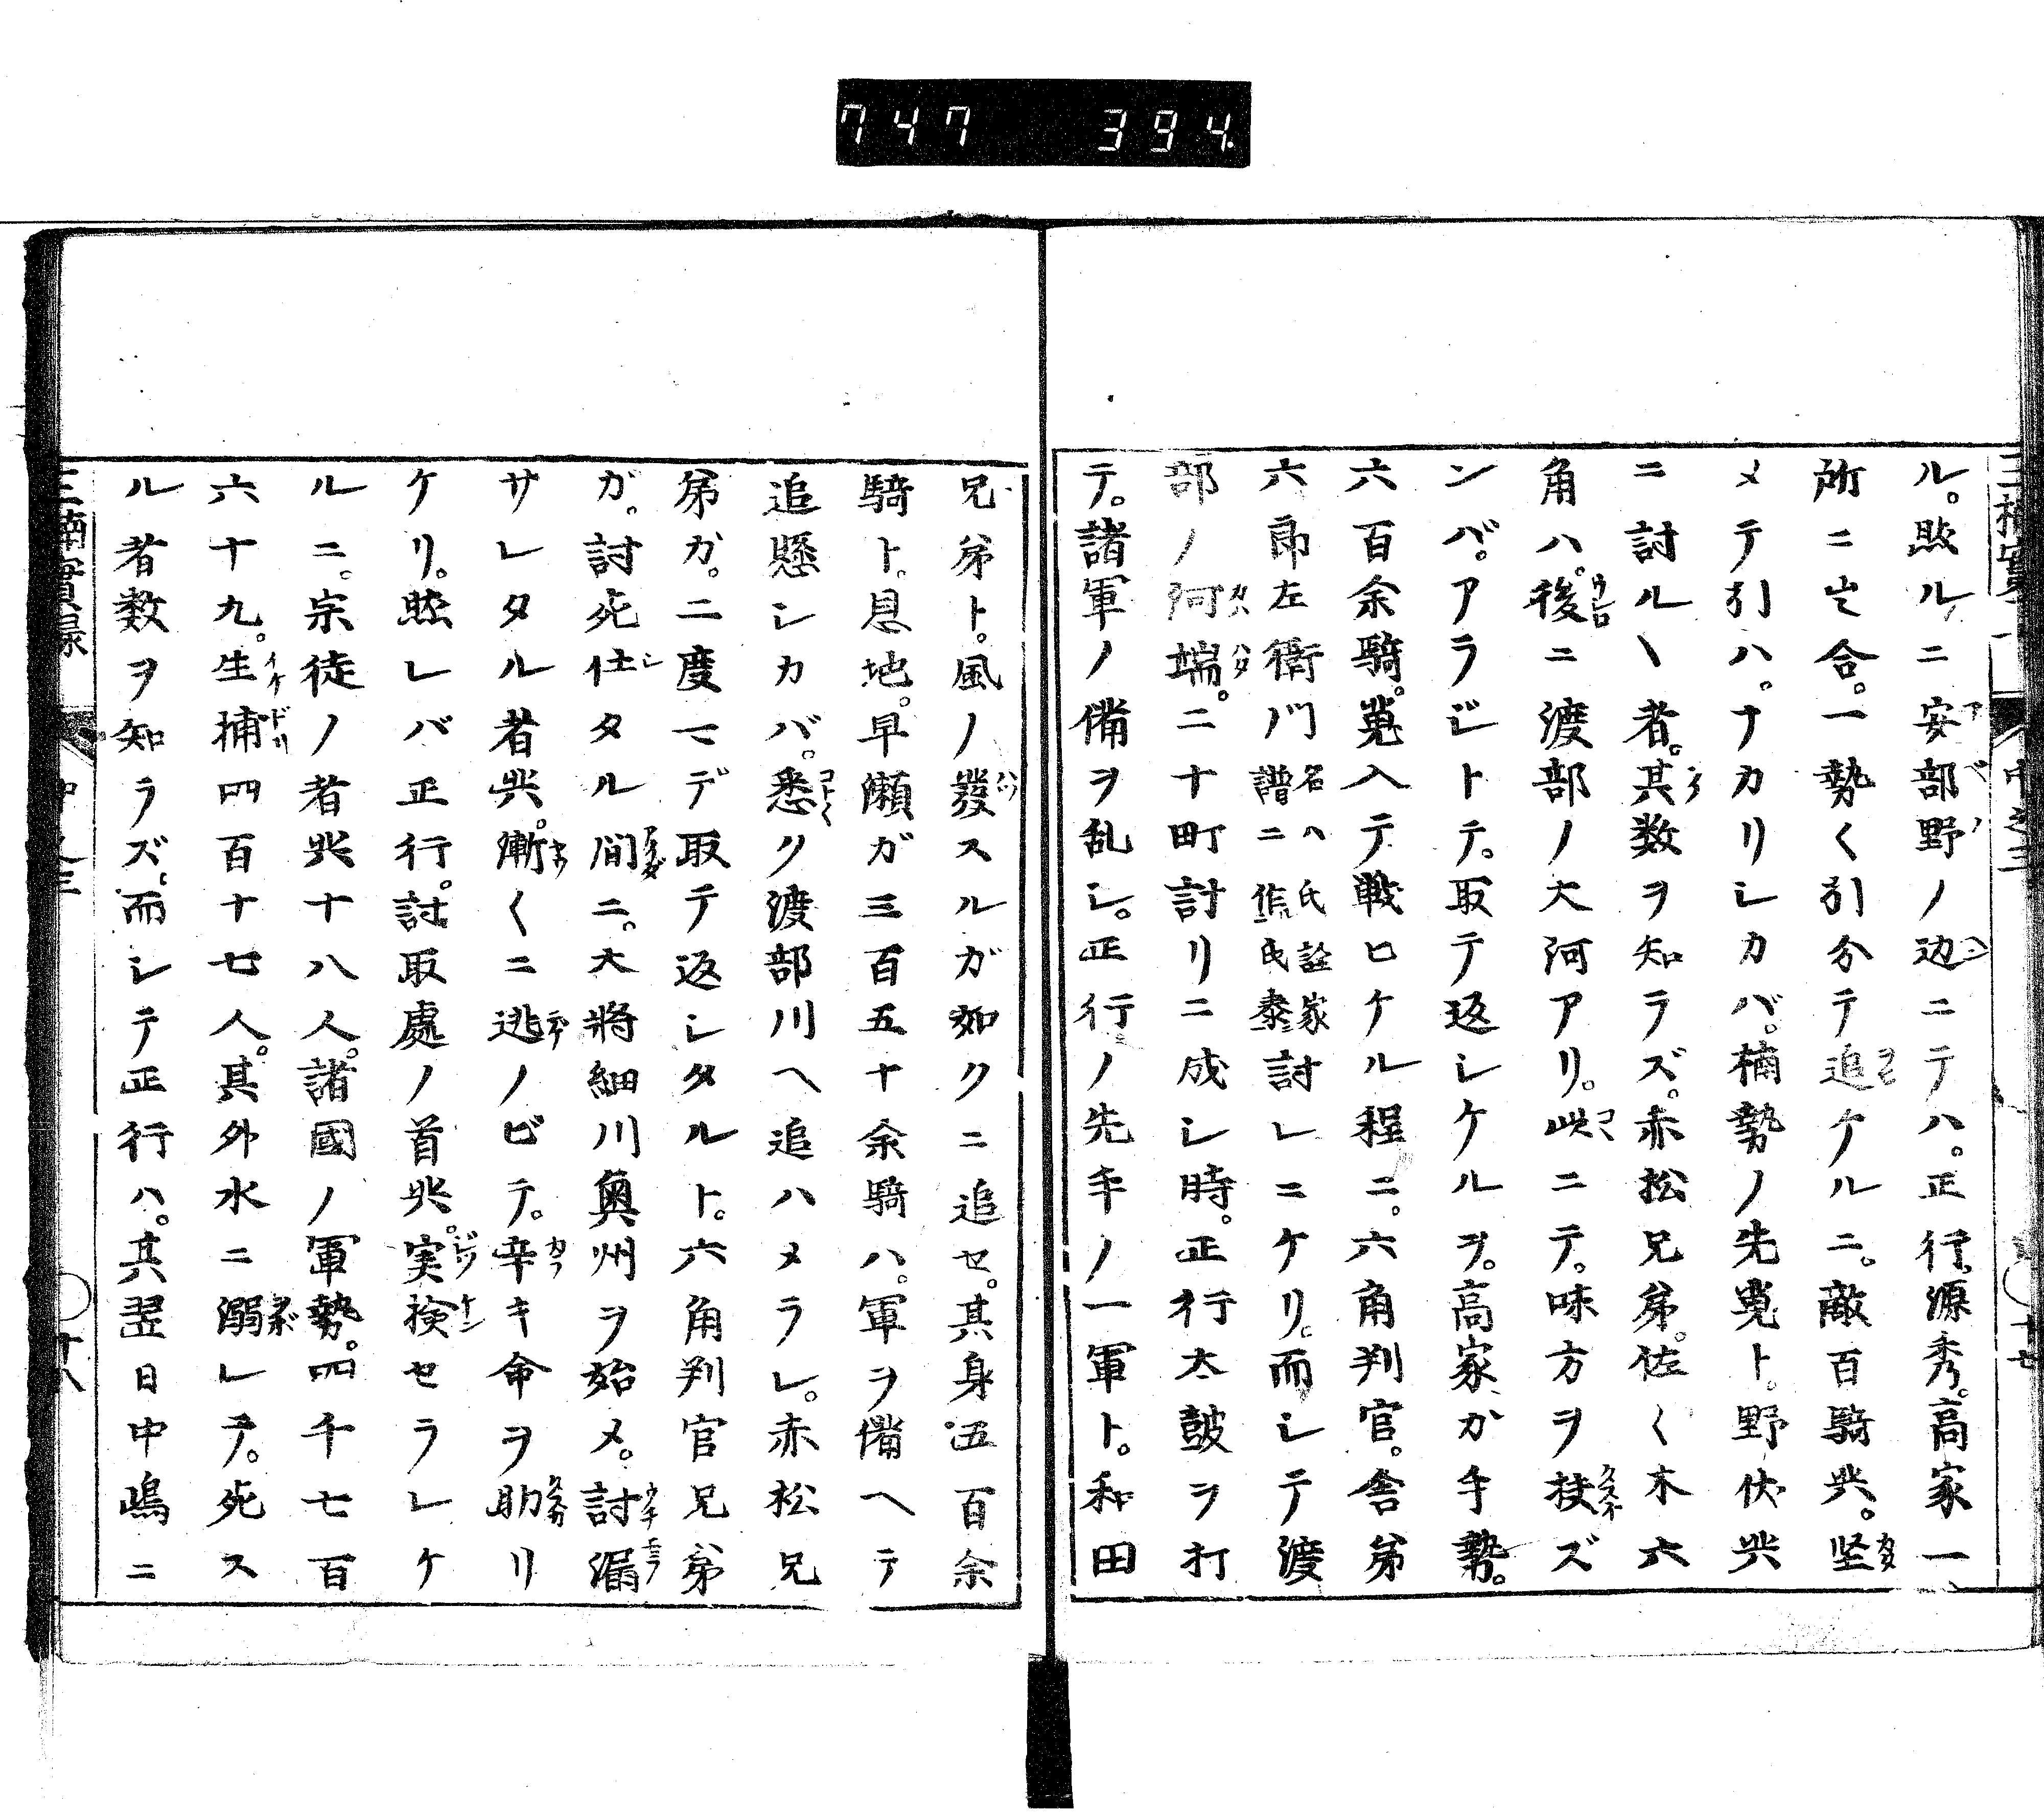 747 394
ル。然ルニ安部野ノ辺ニテハ。正行。源秀。高家一
所ニ出合。一勢〱引分テ追ケルニ。敵百騎共。堅
メテ引ハ。ナカリシカバ。楠勢ノ先兎ト。野伏共
ニ討ルヽ者。其数ヲ知ラズ。赤松兄弟。佐〱木六
角ハ。後ニ渡部ノ大河アリ。此ニテ。味方ヲ扶ズ
ンバ。アラジトテ。取テ返シケルヲ。高家カ手勢。
六百余騎。蒐入テ戦ヒケル程ニ。六角判官。舎弟
六郎左衛門名ハ氏詮家譜ニ作氏泰討レニケリ。而シテ渡
部ノ河端。ニ十町討リニ成シ時。正行太鼓ヲ打
テ。諸軍ノ備ヲ乱シ。正行ノ先手ノ一軍ト。和田
兄弟ト。風ノ發スルガ如クニ追セ。其身五百余
騎ト。恩地。早瀬ガ三百五十余騎ハ。軍ヲ備ヘテ
追懸シカバ。悉ク渡部川ヘ追ハメラレ。赤松兄
弟ガ。二度マデ取テ返シタルト。六角判官兄弟
ガ。討死仕タル間ニ。大將細川奥州ヲ始メ。討漏
サレタル者共。漸〱ニ逃ノビテ。辛キ命ヲ助リ
ケリ。然レバ正行。討取處ノ首共。実検セラレケ
ルニ。宗徒ノ者共十八人。諸國ノ軍勢。四千七百
六十九。生捕四百十七人。其外水ニ溺レテ。死ス
ル者数ヲ知ラズ。而シテ正行ハ。其翌日中嶋ニ
三楠實録 中之三 十八